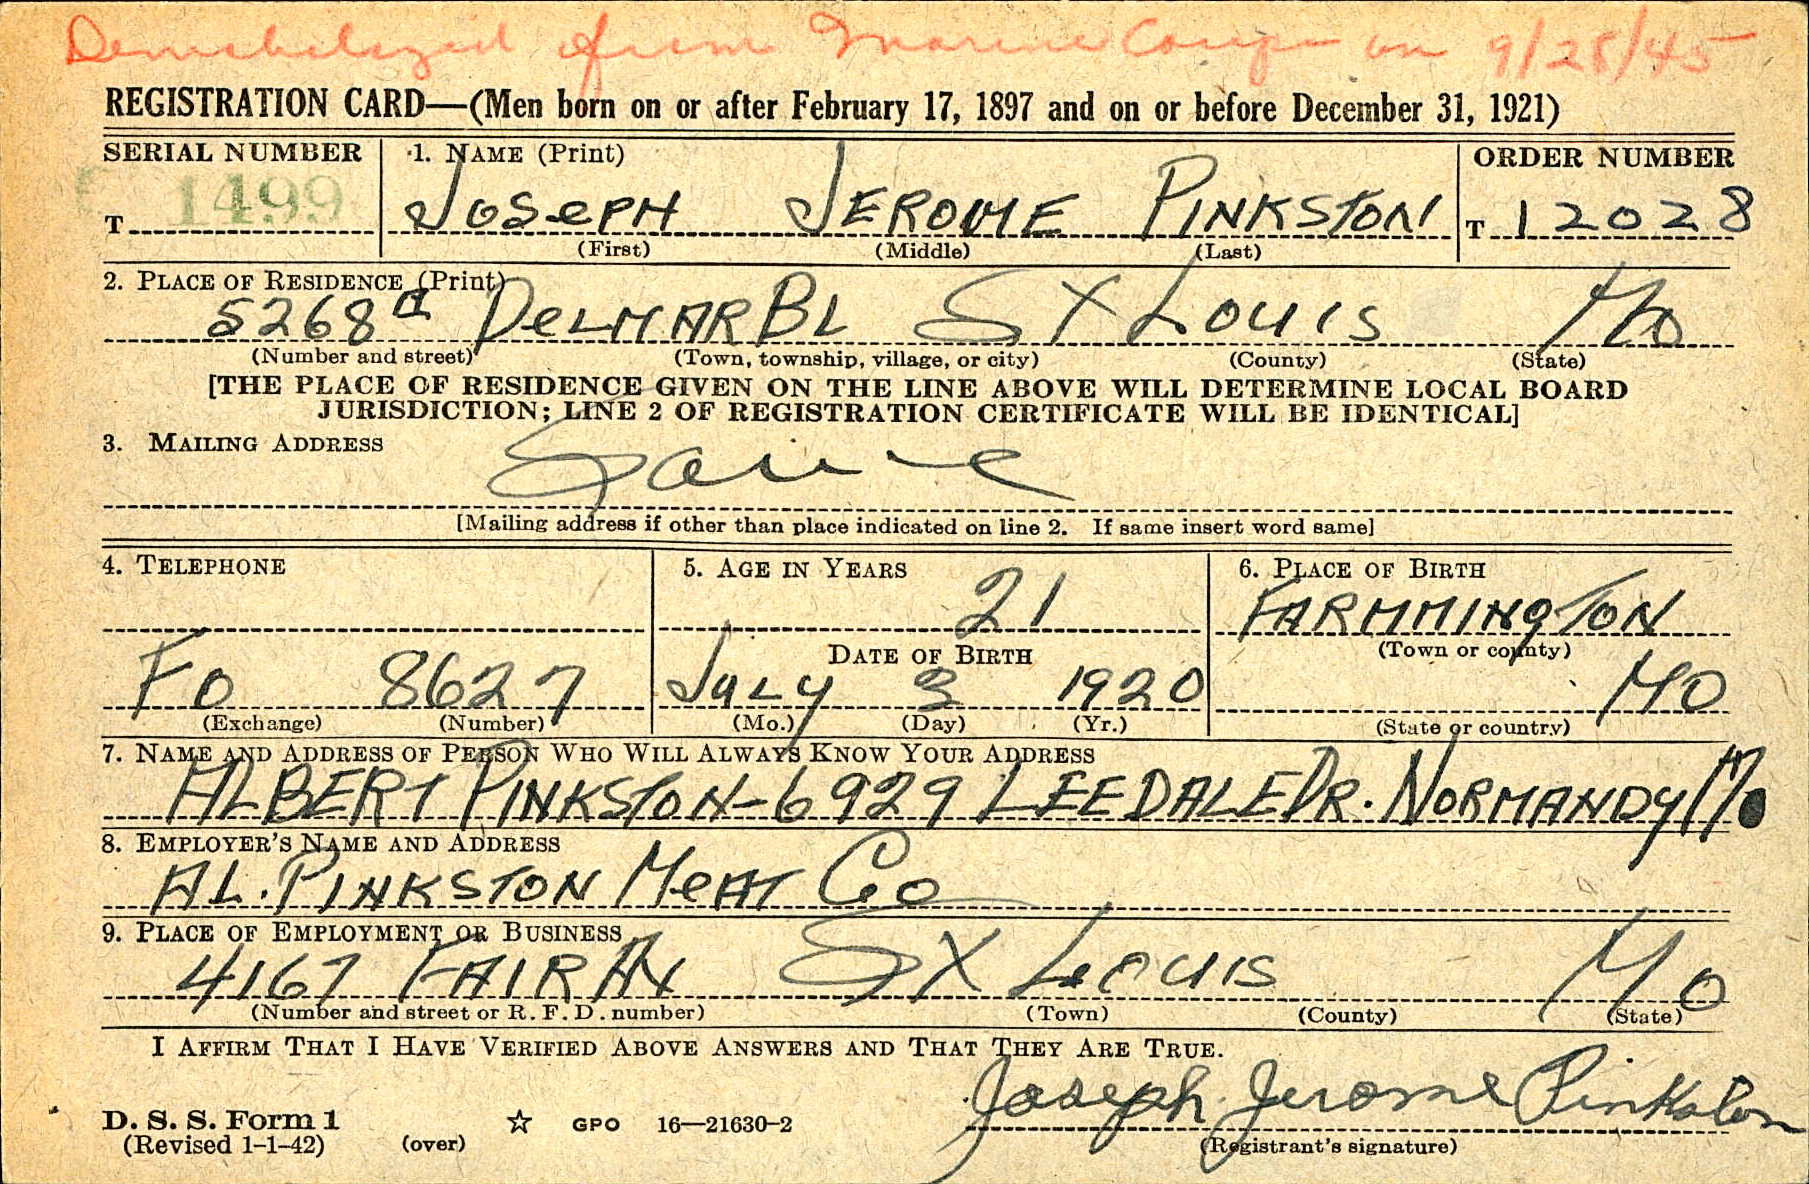 Demobilized from Marine Corps on 9/28/45
REGISTRATION CARD—(Men born on or after February 17, 1897 and on or before December 31, 1921)
SERIAL NUMBER 1. NAME (Print) ORDER NUMBER
T 1499 JOSePH JEROME PINKSTON T 12028
(First) (Middle) (Last)
2. PLACE OF RESIDENCE (Print)
5268 A DeLMAR BL ST LOUIS MO
(Number and street) (Town, township, village, or city) (County) (State)
[THE PLACE OF RESIDENCE GIVEN ON THE LINE ABOVE WILL DETERMINE LOCAL BOARD
JURISDICTION; LINE 2 OF REGISTRATION CERTIFICATE WILL BE IDENTICAL]
3. MAILING ADDRESS
Same
[Mailing address if other than place indicated on line 2. If same insert word same]
4. TELEPHONE 5. AGE IN YEARS 6. PLACE OF BIRTH
21 FARMMINgTON
DATE OF BIRTH (Town or county)
FO 8627 JULY 3 1920 MO
(Exchange) (Number) (Mo.) (Day) (Yr.) (State or country)
7. NAME AND ADDRESS OF PERSON WHO WILL ALWAYS KNOW YOUR ADDRESS
ALBERT PINKSTON-6929 LEEDALE DR. NORMANDY MO
8. EMPLOYER'S NAME AND ADDRESS
AL. PINKSTON MeAT Co
9. PLACE OF EMPLOYMENT OR BUSINESS
4167 FAIR AV ST LOUIS MO
(Number and street or R. F. D. number) (Town) (County) (State)
I AFFIRM THAT I HAVE VERIFIED ABOVE ANSWERS AND THAT THEY ARE TRUE.
Joseph Jerome Pinkston
D. S. S. Form 1 ☆ GPO 16—21630-2
(Revised 1-1-42) (over) (Registrant's signature)